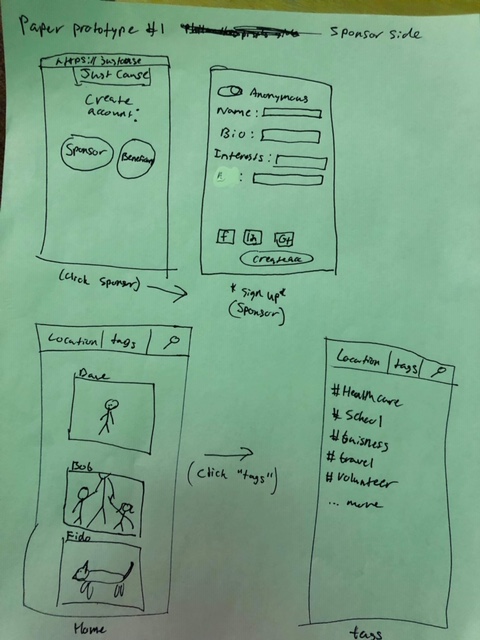 Paper prototype #1 Sponsor side
https://justcause
Just Cause
Create
account:
Sponsor
Beneficiary
Anonymous
Name:
Bio:
Interests:
:
f in G+
Create acc
(click sponsor)
* sign up *
(Sponsor)
Location tags
Dave
Bob
Fido
Home
(click "tags")
Location tags
#Healthcare
#School
#Buisness
#travel
#volunteer
... more
tags